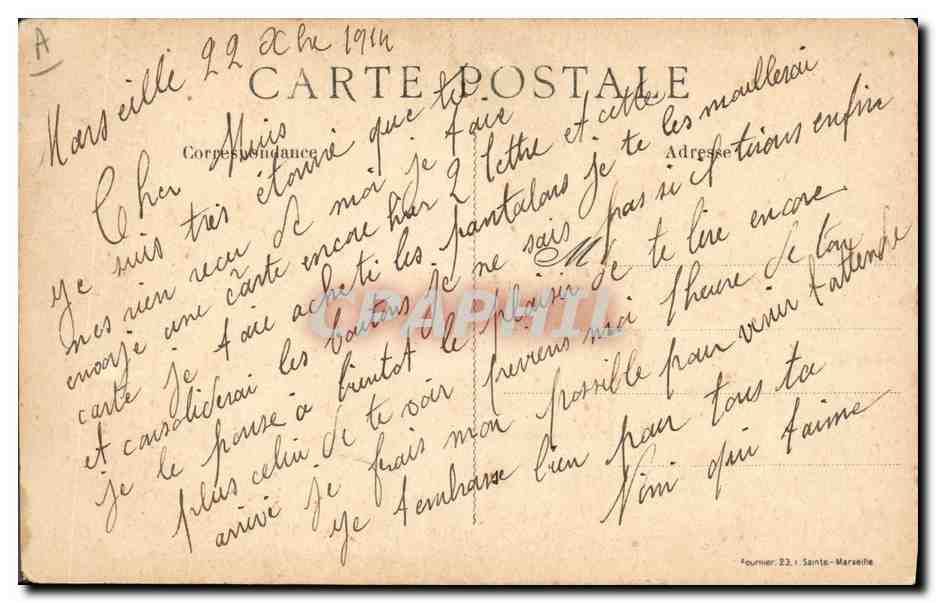 A
Marseille 22 Xbre 1914
CARTE POSTALE
Correspondance
Adresse
Cher Minis
Je suis très étonné que tu
mes rien recu de moi je taie
envoyé une carte encore hier 2 lettre et cette
carte je taie acheti les pantalons je te les mouillerai
et consoliderai les boutons je ne sais pas si c tirons enfin
je le pense a bientot le plaisir de te lire encore
plus celui de te voir previens moi lheure de ton
arrivé je ferais mon possible pour venir tattendre
je tembrasse bien pour tous ta
Nini qui taime
M
CPAPHIL
Fournier. 23, r. Sainte-Marseille